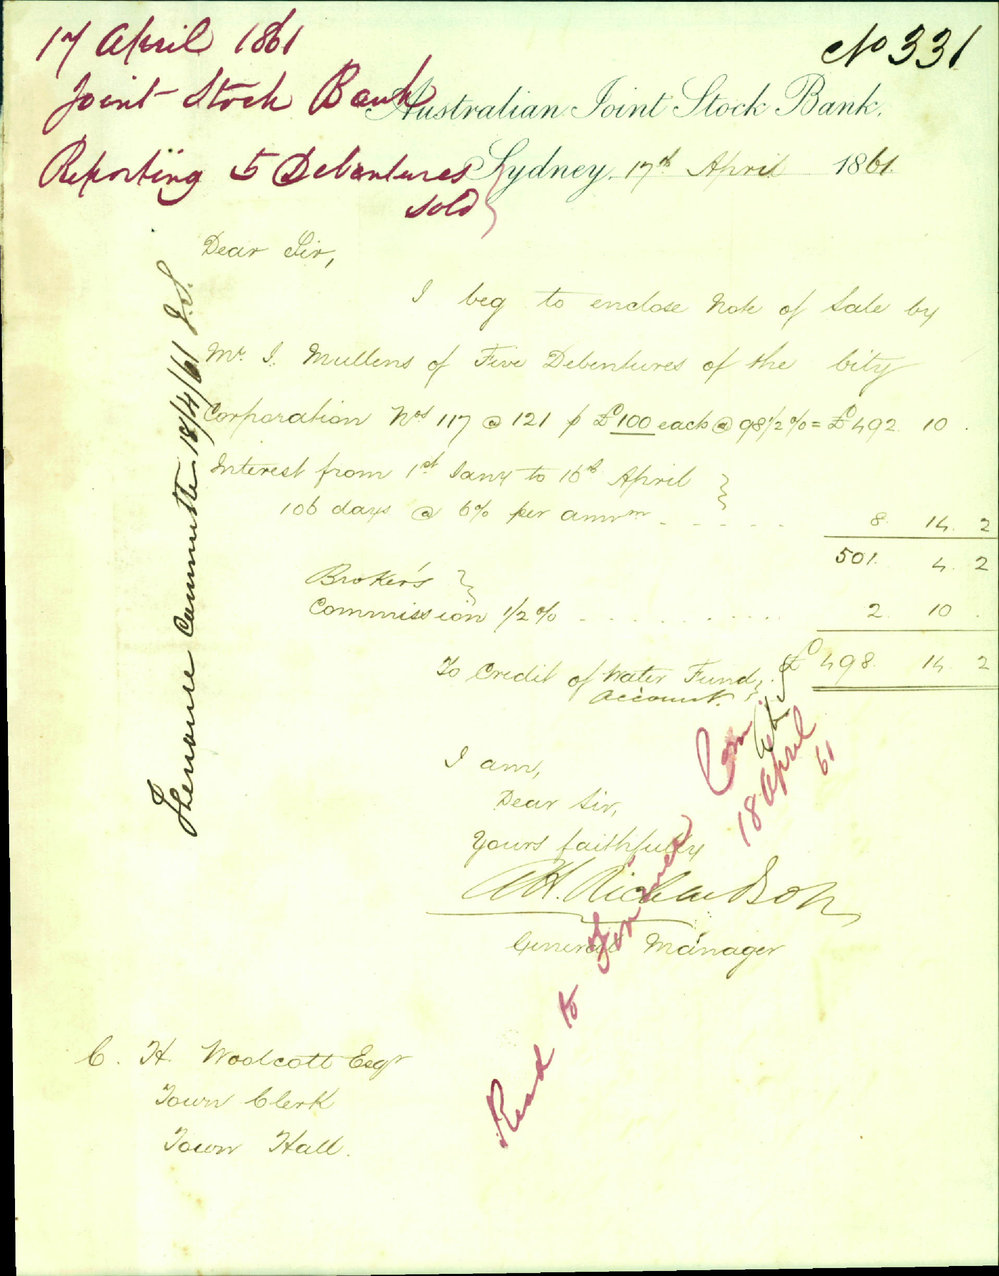 17 April 1861
No 331
Joint Stock Bank
Australian Joint Stock Bank.
Reporting 5 Debentures
sold
Sydney 17th April 1861
Dear Sir,
I beg to enclose Note of Sale by
Mr. J. Mullens of Five Debentures of the City
Corporation Nos 117 @ 121 p £100 each @ 98 1/2 % = £492 10 .
Interest from 1st Jany to 16th April
106 days @ 6% per annm - - - - - 8. 14. 2
501. 4. 2
Broker's
Commission 1/2 % - - - - - - - 2 10 .
To Credit of Water Fund £498. 14. 2
Account.
I am,
Dear Sir,
Yours faithfully
A H. Richardson
General Manager
C. H. Woolcott Esqr
Town Clerk
Town Hall.
Finance Committee 18/4/61 J.S.
Read to Finance Com
18 April
61